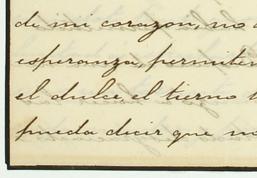 de mi corazon, no
esperanza, permiten
el dulce, el tierno
pueda decir que no